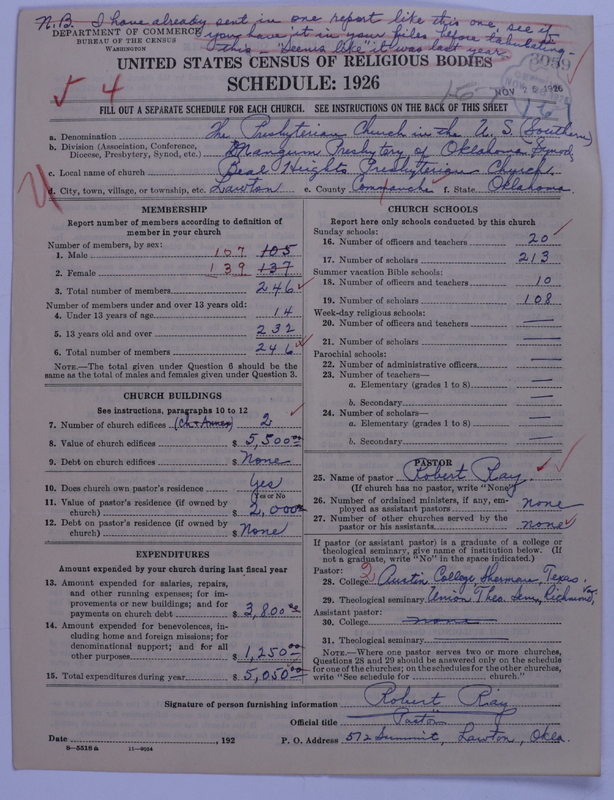 N.B. I have already sent in one report like this one, see if
you have it in your files before tabulating
this - "Seems like" it was last year.
DEPARTMENT OF COMMERCE
BUREAU OF THE CENSUS
WASHINGTON
3059
UNITED STATES CENSUS OF RELIGIOUS BODIES
SCHEDULE: 1926
NOV 1926
4
FILL OUT A SEPARATE SCHEDULE FOR EACH CHURCH. SEE INSTRUCTIONS ON THE BACK OF THIS SHEET
a. Denomination The Presbyterian Church in the U. S. (Southern)
b. Division (Association, Conference, Diocese, Presbytery, Synod, etc.) Mangum Presbytery of Oklahoma Synod
c. Local name of church Beal Heights Presbyterian Church.
d. City, town, village, or township, etc. Lawton e. County Commanche f. State Oklahoma
MEMBERSHIP
Report number of members according to definition of
member in your church
Number of members, by sex:
1. Male 107 105
2. Female 139 137
3. Total number of members 246
Number of members under and over 13 years old:
4. Under 13 years of age 14
5. 13 years old and over 232
6. Total number of members 246
NOTE.—The total given under Question 6 should be the
same as the total of males and females given under Question 3.
CHURCH BUILDINGS
See instructions, paragraphs 10 to 12
7. Number of church edifices (Ch + Annex) 2
8. Value of church edifices $ 5,500.00
9. Debt on church edifices $ None
10. Does church own pastor's residence Yes
(Yes or No
11. Value of pastor's residence (if owned by
church) $ 2,000.00
12. Debt on pastor's residence (if owned by
church) $ None
EXPENDITURES
Amount expended by your church during last fiscal year
13. Amount expended for salaries, repairs,
and other running expenses; for im-
provements or new buildings; and for
payments on church debt $ 3,800.00
14. Amount expended for benevolences, in-
cluding home and foreign missions; for
denominational support; and for all
other purposes $ 1,250.00
15. Total expenditures during year $ 5,050.00
CHURCH SCHOOLS
Report here only schools conducted by this church
Sunday schools:
16. Number of officers and teachers 20
17. Number of scholars 213
Summer vacation Bible schools:
18. Number of officers and teachers 10
19. Number of scholars 108
Week-day religious schools:
20. Number of officers and teachers —
21. Number of scholars —
Parochial schools:
22. Number of administrative officers —
23. Number of teachers—
a. Elementary (grades 1 to 8) —
b. Secondary —
24. Number of scholars—
a. Elementary (grades 1 to 8) —
b. Secondary —
PASTOR
25. Name of pastor Robert Ray.
(If church has no pastor, write "None")
26. Number of ordained ministers, if any, em-
ployed as assistant pastors none
27. Number of other churches served by the
pastor or his assistants none
If pastor (or assistant pastor) is a graduate of a college or
theological seminary, give name of institution below. (If
not a graduate, write "No" in the space indicated.)
Pastor: 2
28. College Austin College, Sherman, Texas.
29. Theological seminary Union Theo. Sem., Richmond, Va.
Assistant pastor:
30. College none
31. Theological seminary —
NOTE.—Where one pastor serves two or more churches,
Questions 28 and 29 should be answered only on the schedule
for one of the churches; on the schedules for the other churches,
write "See schedule for ........ church."
Signature of person furnishing information Robert Ray
Official title Pastor
Date , 192 P. O. Address 512 Summit, Lawton, Okla.
8—5518a 11—9054